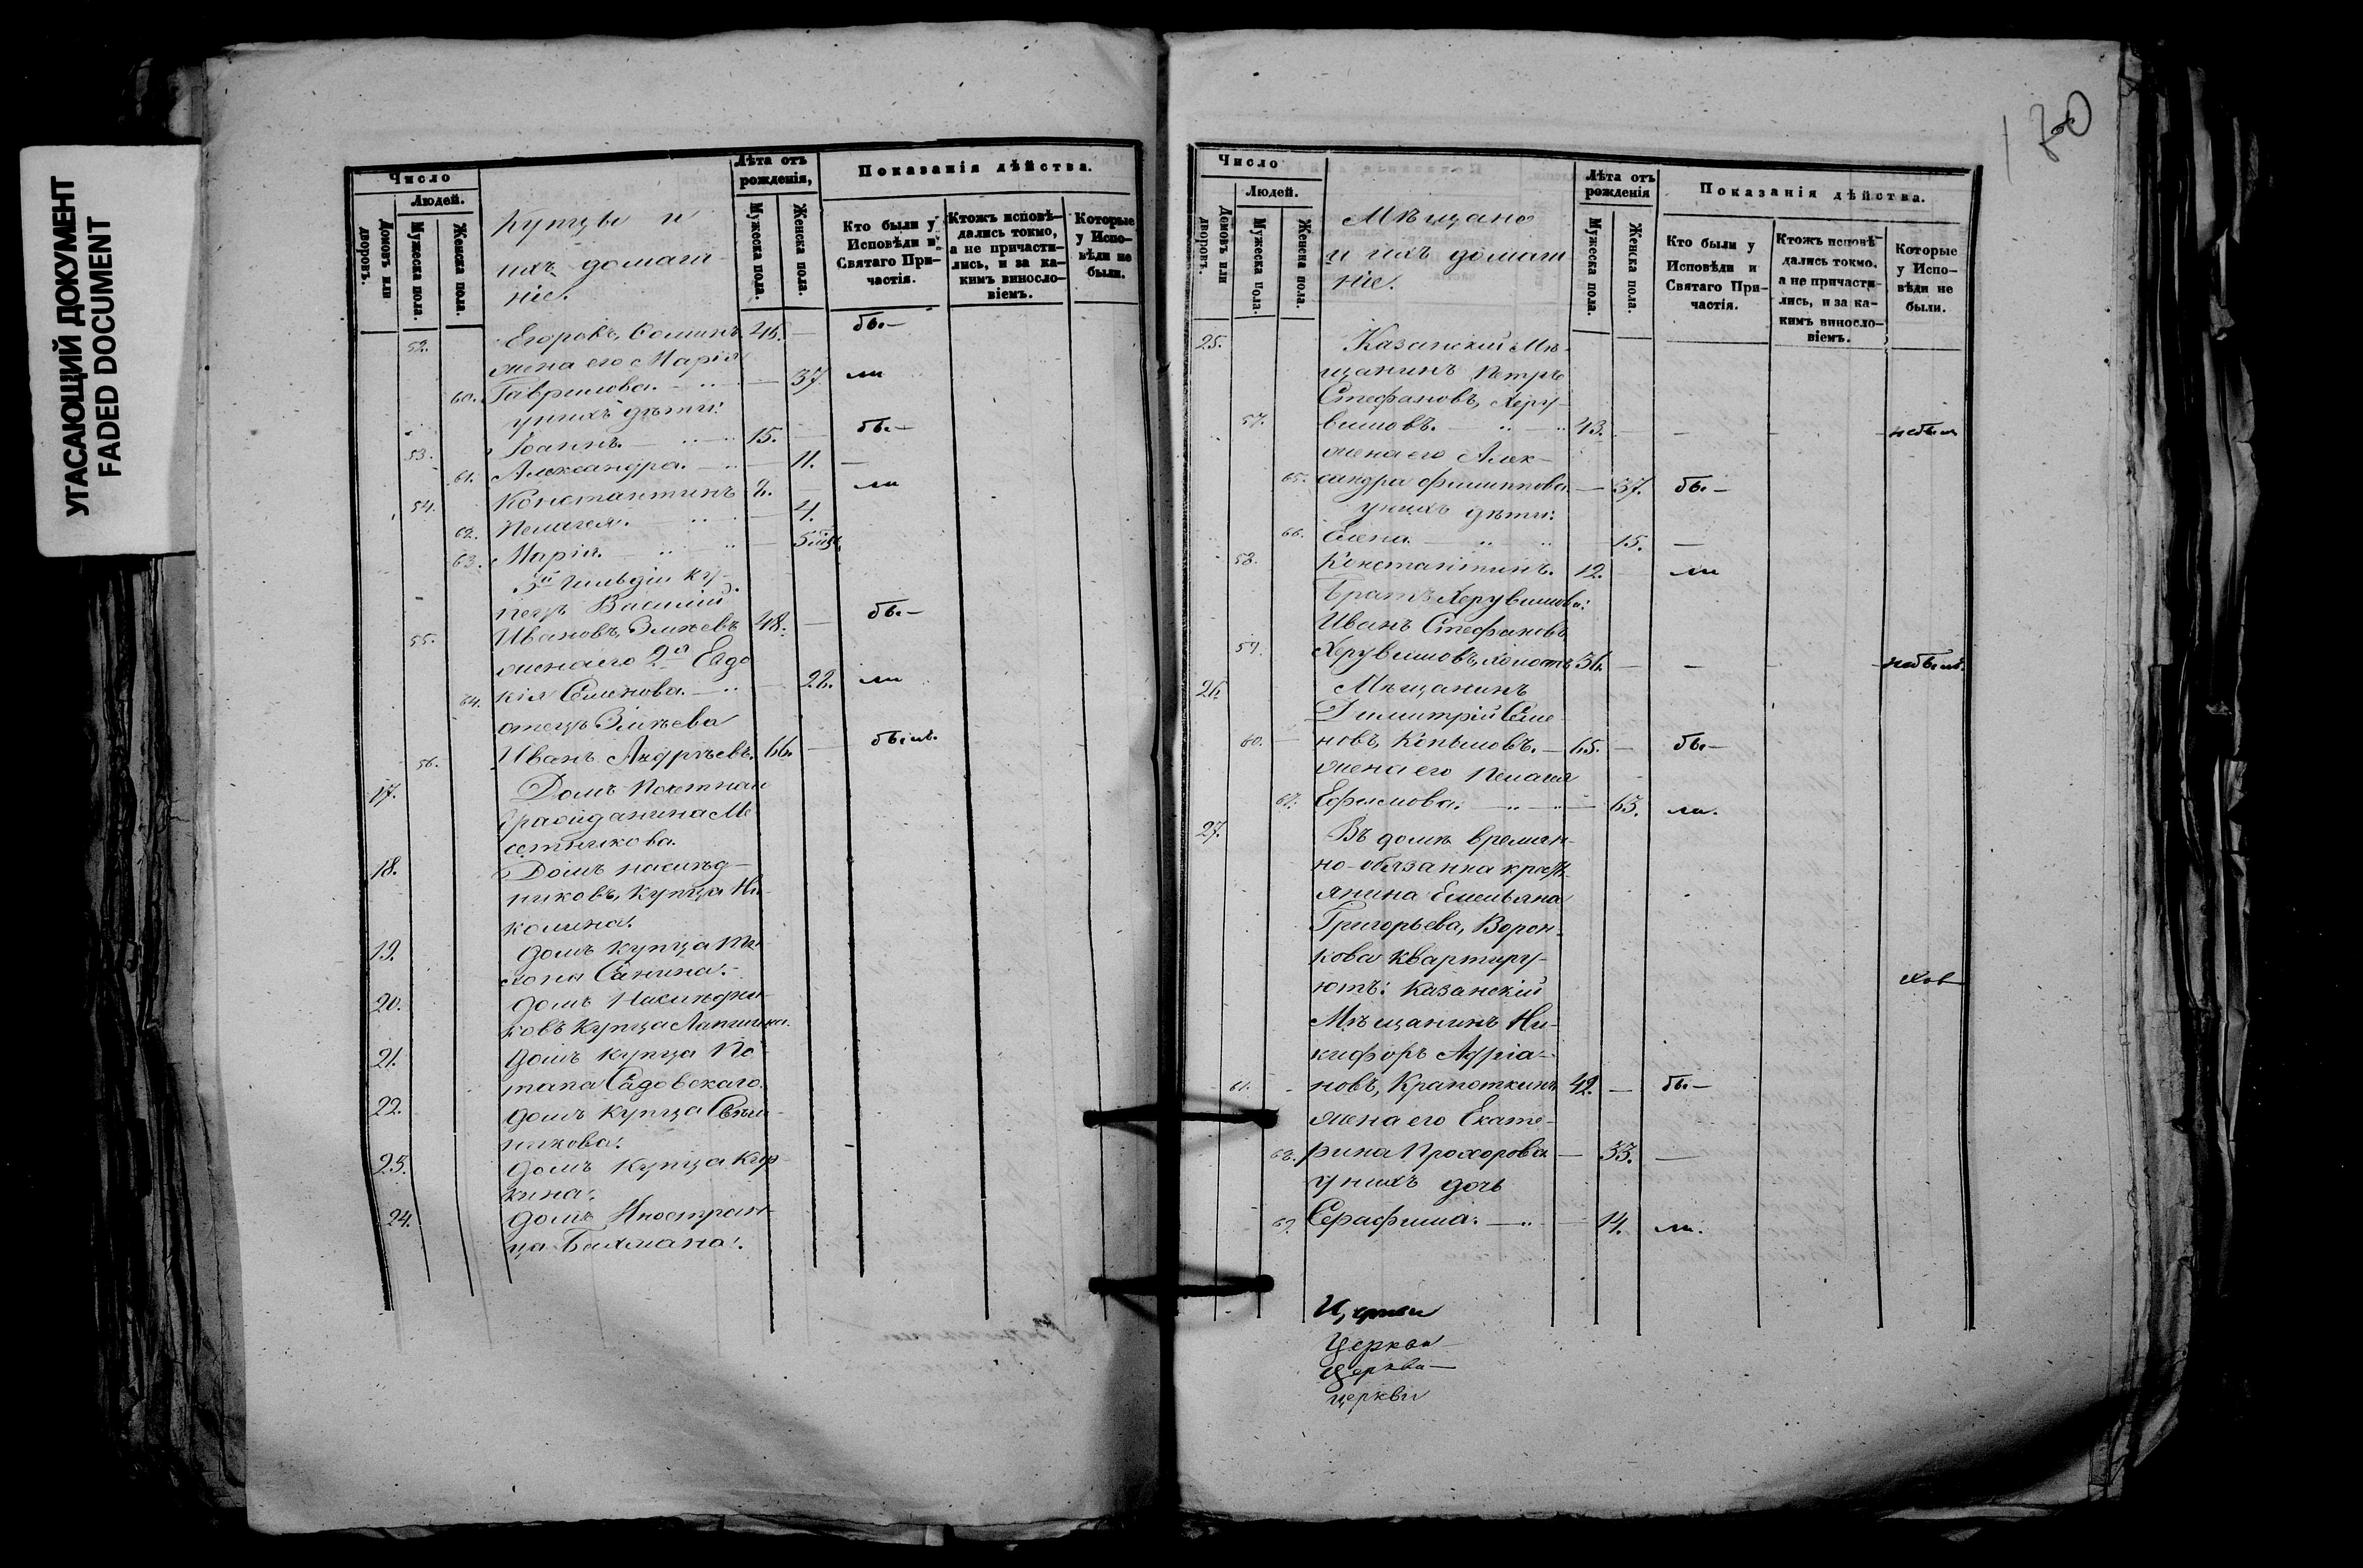 УГАСАЮЩИЙ ДОКУМЕНТ
FADED DOCUMENT
Число
Людей.
Домовъ или дворовъ.
Мужеска пола.
Женска пола.
Купцы и
ихъ домаш-
ніе.
Лѣта отъ
рожденія,
Мужеска пола.
Женска пола.
Показанія дѣйства.
Кто были у
Исповѣди и
Святаго При-
частія.
Ктожъ исповѣ-
дались токмо,
а не причасти-
лись, и за ка-
кимъ виносло-
віемъ.
Которые
у Испо-
вѣди не
были.
52. Егоровъ, 46. — бы-
жена его Марія
60. Гаврилова. — 37. ли
у нихъ дѣти:
53. Іоаннъ. 15. — бы-
61. Александра. — 11. —
54. Константинъ 8. — ли
62. Пелагея. — 4.
63. Марія. — 5 мѣс.
3й гильдіи ку-
пецъ Василій
55. Ивановъ, Зміевъ 48. — бы-
жена его 2я Евдо
64. кія Семенова. — 22. ли
отецъ Зміева
56. Иванъ Андрѣевъ. 66. — былъ.
17. Домъ Почетнаго
Гражданина Ме
сетникова.
18. Домъ наслѣд-
никовъ, купца Ни-
колина.
19. Домъ купца Ти-
хона Санина.
20. Домъ Наслѣдни-
ковъ купца Лапшина.
21. Домъ купца По-
тапа Садовскаго.
22. Домъ купца
никова.
23. Домъ купца Кур
кина.
24. Домъ Иностран-
ца Бахмана.
130
Число
Людей.
Домовъ или дворовъ.
Мужеска пола.
Женска пола.
Мѣщане
и ихъ домаш
ніе.
Лѣта отъ
рожденія
Мужеска пола.
Женска пола.
Показанія дѣйства.
Кто были у
Исповѣди и
Святаго При-
частія.
Ктожъ исповѣ-
дались токмо,
а не причасти-
лись, и за ка-
кимъ виносло-
віемъ.
Которые
у Испо-
вѣди не
были.
25. Казанскій Мѣ-
щанинъ Петръ
Стефановъ, Херу-
57. вимовъ. 43. — — — небылъ
жена его Алек-
65. сандра Филиппова — 37. бы-
у нихъ дѣти:
66. Елена. — 15. —
58. Константинъ. 12. — ли
Братъ Херувимова:
Иванъ Стефановъ
59. Херувимовъ, холостъ 36. — — — небылъ.
26. Мѣщанинъ
Димитрій Семе-
60. новъ, Копыловъ. — 65. — бы-
жена его Пелагея
67. Ефимова. — 63. ли.
27. Въ домѣ времян-
но-обязанна крест-
янина Емельяна
Григорьева, Ворон-
кова квартиру-
ютъ: Казанскій
Мѣщанинъ Ни-
кифоръ Адріа-
61. новъ, Крапоткинъ 42. — бы-
жена его Екате-
68. рина Прохорова — 33. —
у нихъ дочь
69. Серафима. — 14. ли.
Церкви
Церкви
Церкви
церкви